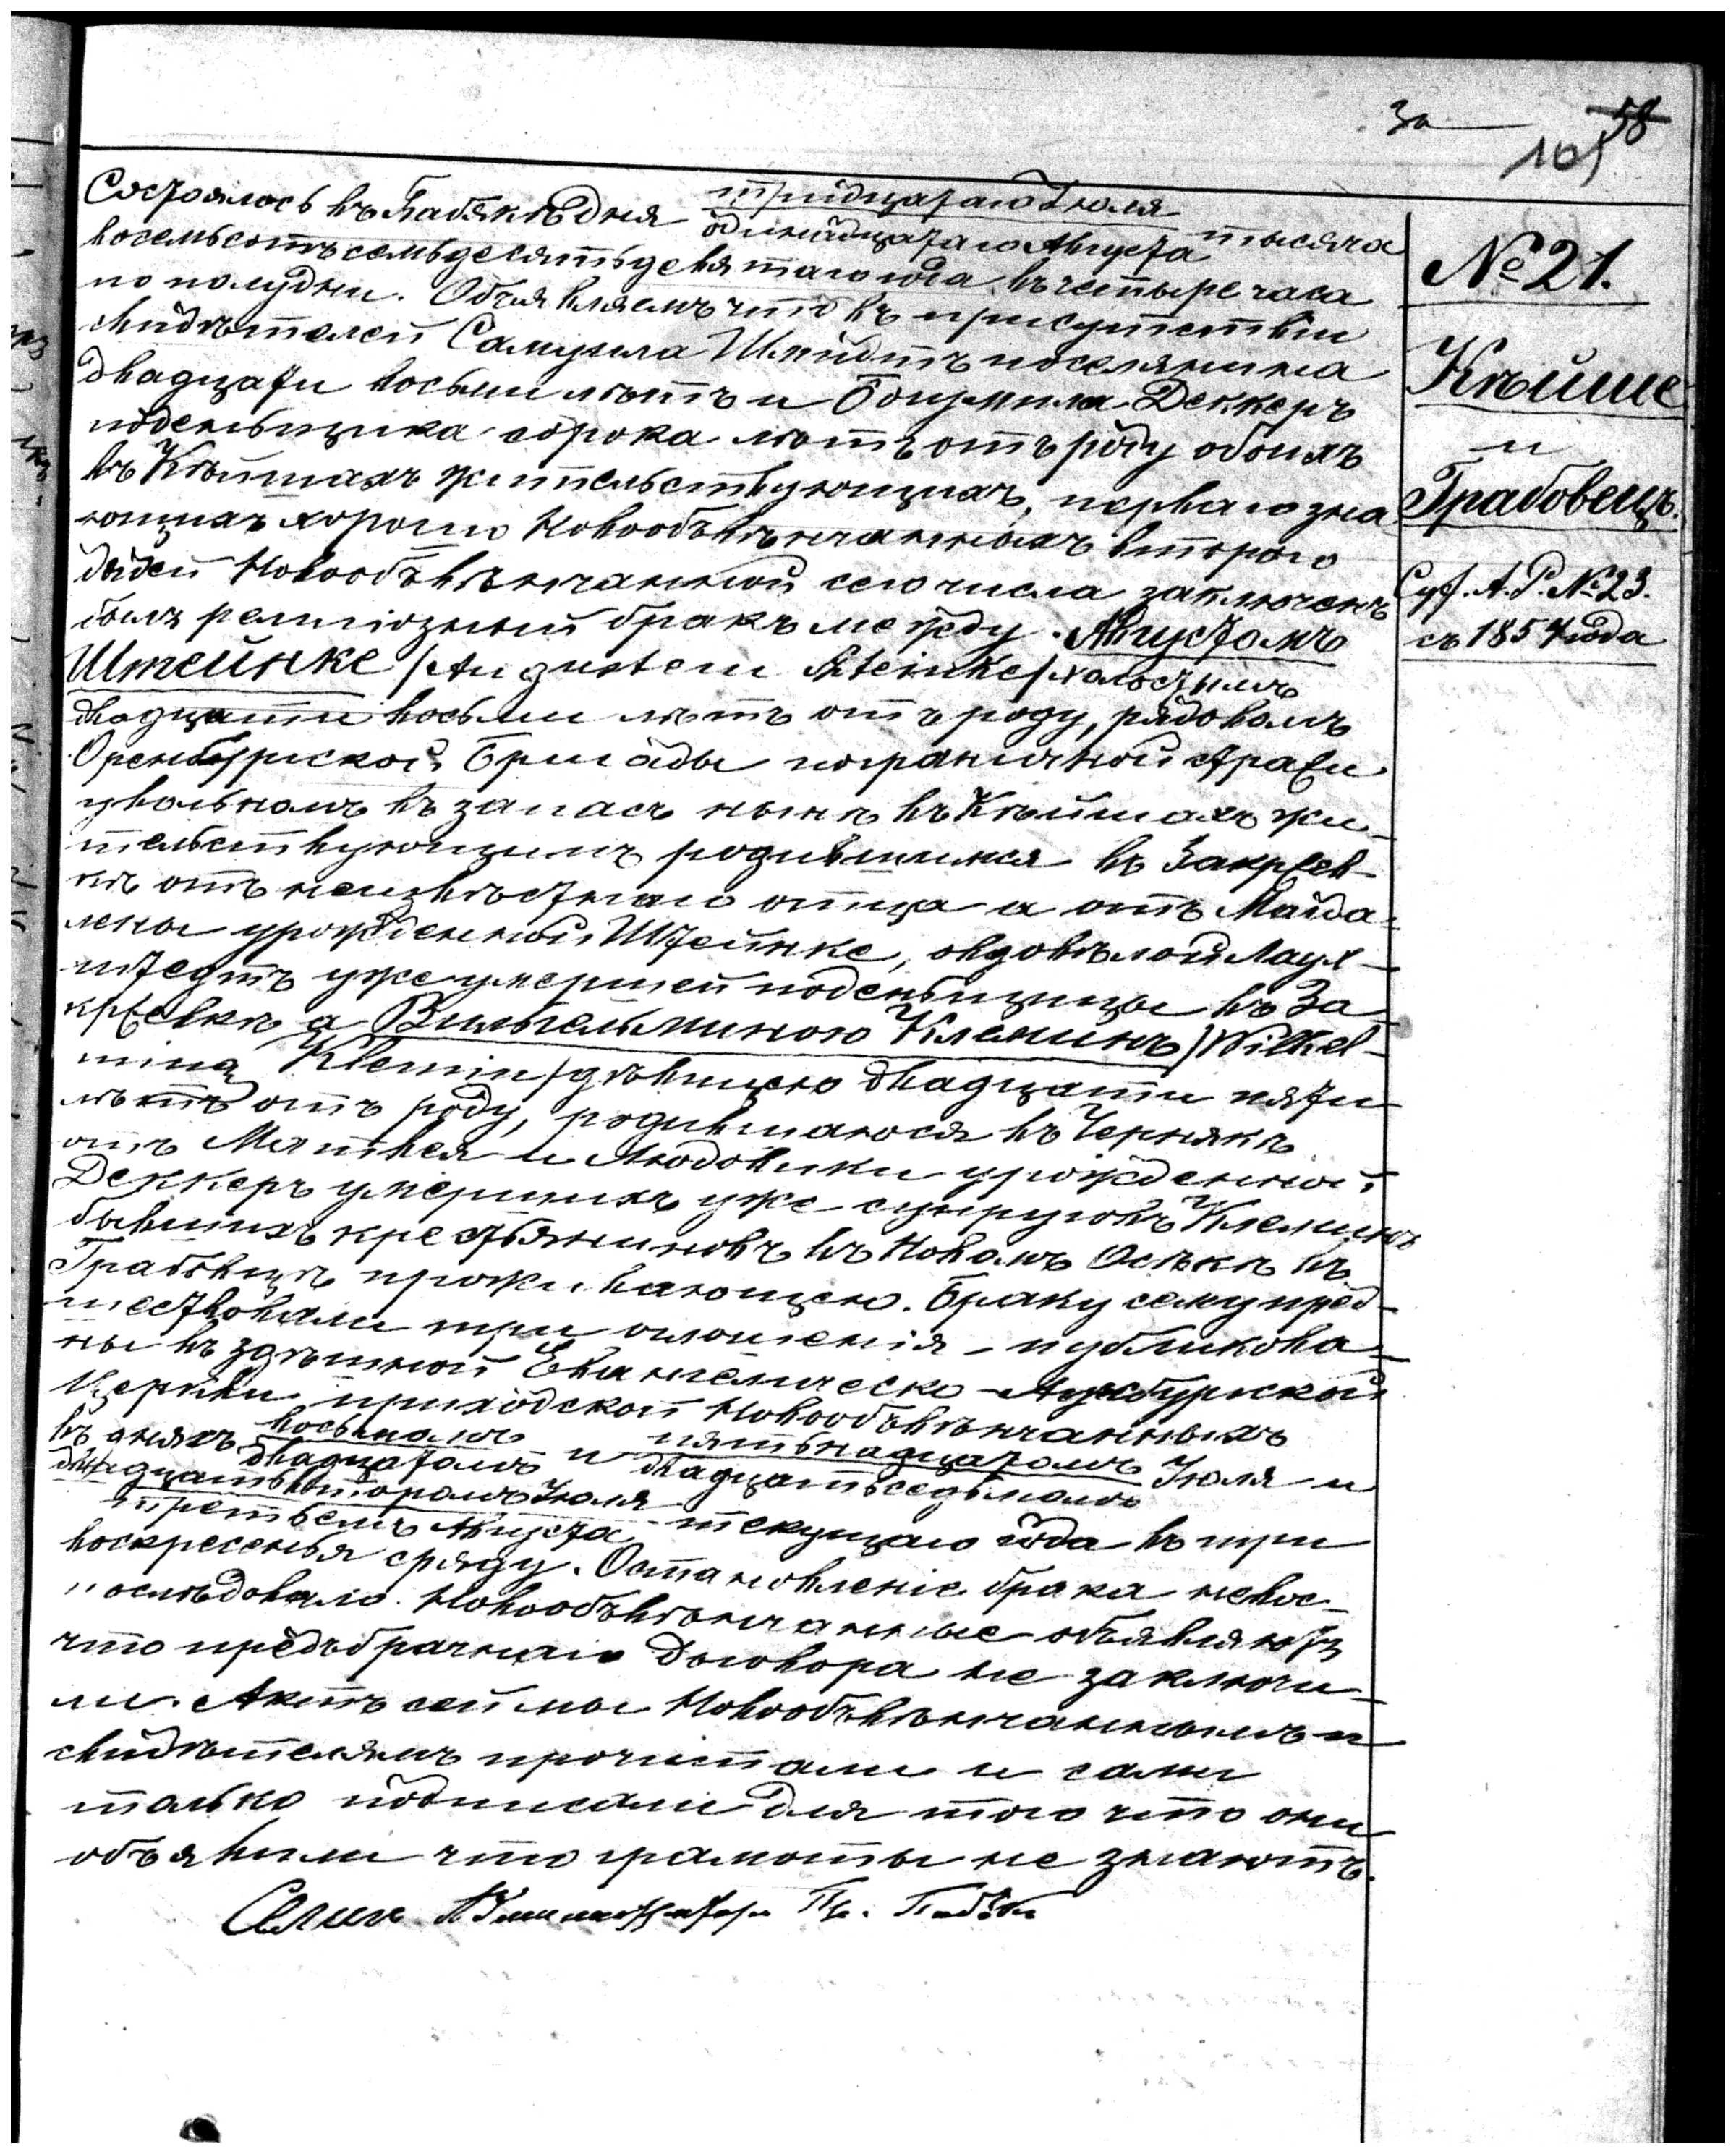 За 58
105
№ 21.
Кѣйше
и
Грабовецъ.
А. Р. № 23.
съ 1854 года
Состоялось въ Бабякѣ дня тридцатаго Іюля / одинадцатаго Августа тысяча
восемьсотъ семьдесятъ девятаго года въ четыре часа
по полудни. Объявляемъ что въ присутствіи
свидѣтелей Самуила Шмидтъ поселянина
двадцати восьми лѣтъ и Богумила Деккеръ
поденьщика сорока лѣтъ отъ роду обоихъ
въ Кѣйшахъ жительствующихъ, перваго зна
ющихъ хорошо Новообвѣнчанныхъ второго
дядей Новообвѣнчанной сего числа заключенъ
былъ религіозный бракъ между Августомъ
Штейнке /Augustem Steinke/ холостымъ
двадцати восьми лѣтъ отъ роду, рядовомъ
Оренбургской Бригады пограничной стражи
увольномъ въ запасъ нынѣ въ Кѣйшахъ жи-
тельствующимъ родившимся въ Закрев-
кѣ отъ неизвѣстнаго отца а отъ Магда-
лены урожденной Штейнке, овдовѣлой
уже умершей поденьщицы въ За
кревкѣ а Вильгельминою Клеминъ /Wilhel-
mina Klemin/ дѣвицею двадцати пяти
лѣтъ отъ роду, родившаюся въ Чернякѣ
отъ Матвея и Людовики урожденной
Деккеръ умершихъ уже супруговъ Клеминъ
бывшихъ крестьяниновъ въ Новомъ Осѣкѣ въ
Грабовцѣ проживающею. Браку сему пред-
шествовали три оглошенія публикова-
ны въ здѣшной Евангелическо-Аугсбургской
Церкви приходской Новообвѣнчанныхъ
въ дняхъ восьмомъ / двадцатомъ и пятьнадцатомъ / двадцатьседьмомъ Іюля и
двадцатьвторомъ Іюля / третьемъ Августа текущаго года въ три
воскресенья сряду. Остановленіе брака невос-
послѣдовало. Новообвѣнчанные объявляютъ
что предъбрачнаго договора не заключи-
ли. Актъ сей мы Новообвѣнчаннымъ и
свидѣтелямъ прочитали и сами
только подписали для того что они
объявили что грамоты не знаютъ.